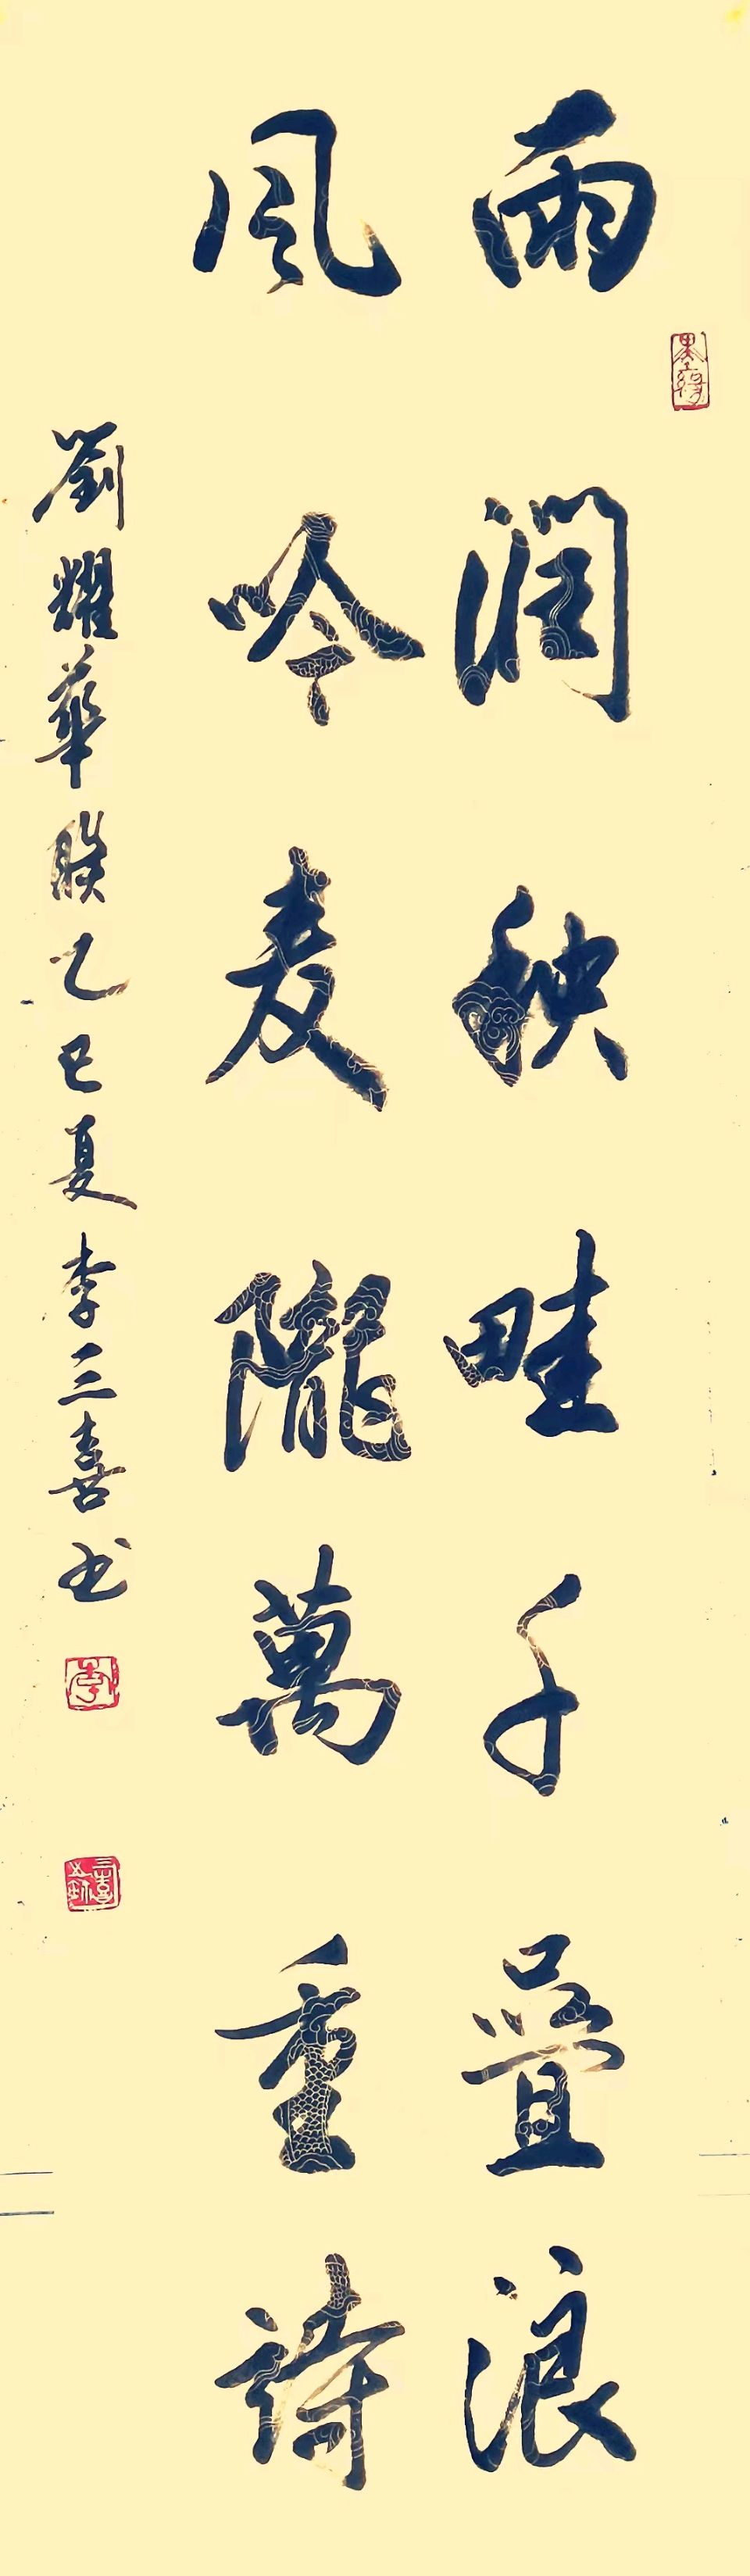 雨潤秧畦千疊浪
風吟麦隴萬重詩
劉耀華联乙巳夏李三喜书
墨缘
李